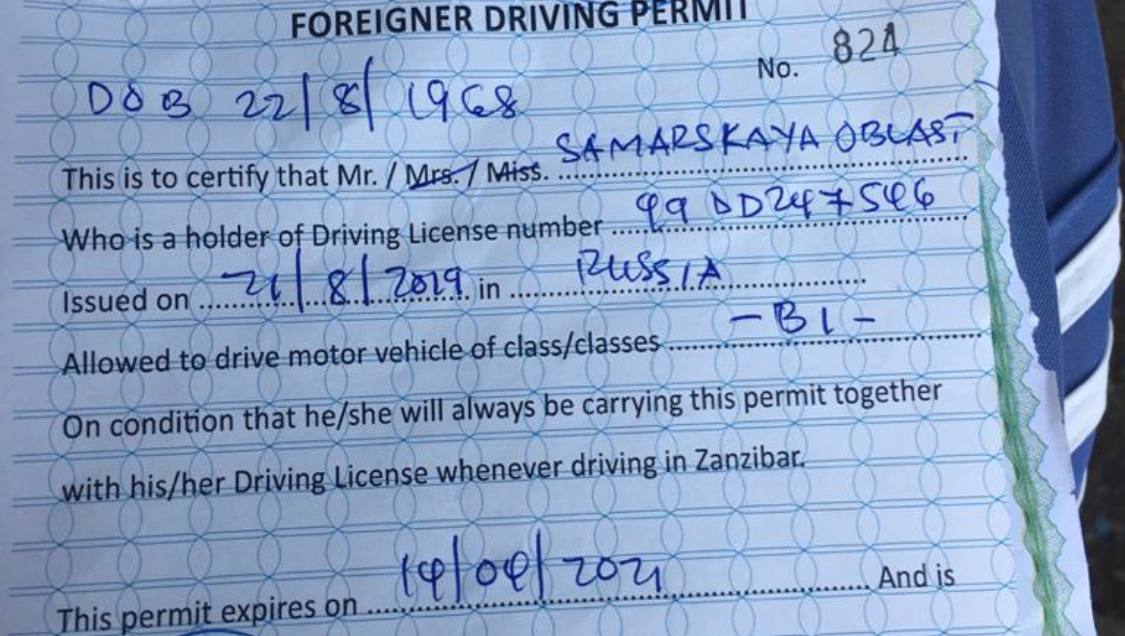 FOREIGNER DRIVING PERMIT
No. 824
DOB 22/8/1968
This is to certify that Mr. / Mrs. / Miss. SAMARSKAYA OBLAST
Who is a holder of Driving License number 99 DD247546
Issued on 21/8/2019 in RUSSIA
Allowed to drive motor vehicle of class/classes -B1-
On condition that he/she will always be carrying this permit together
with his/her Driving License whenever driving in Zanzibar.
This permit expires on 14/04/2021 And is